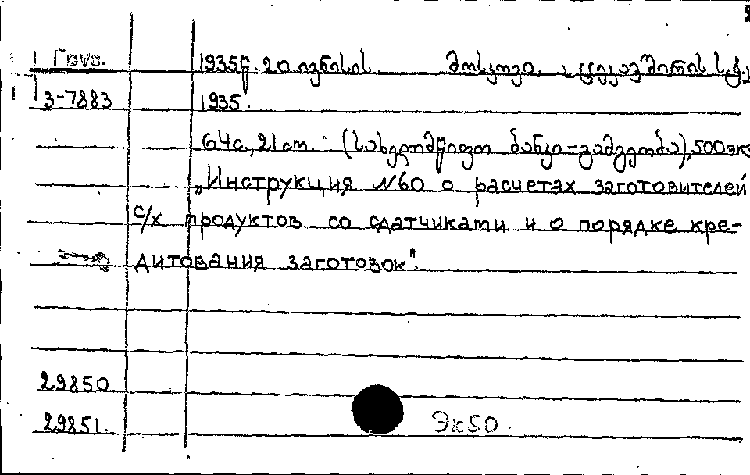 1935წ. 20 ივნისის მოსკოვი.
3-7883 1935.
64с, 21 cm. (სახელმწიფო ბანკი-გამგეობა), 500 экз
„Инструкция №60 о расчетах заготовителей
с/х продуктов со сдатчиками и о порядке кре-
дитования заготовок".
29850
29851. Эк50.